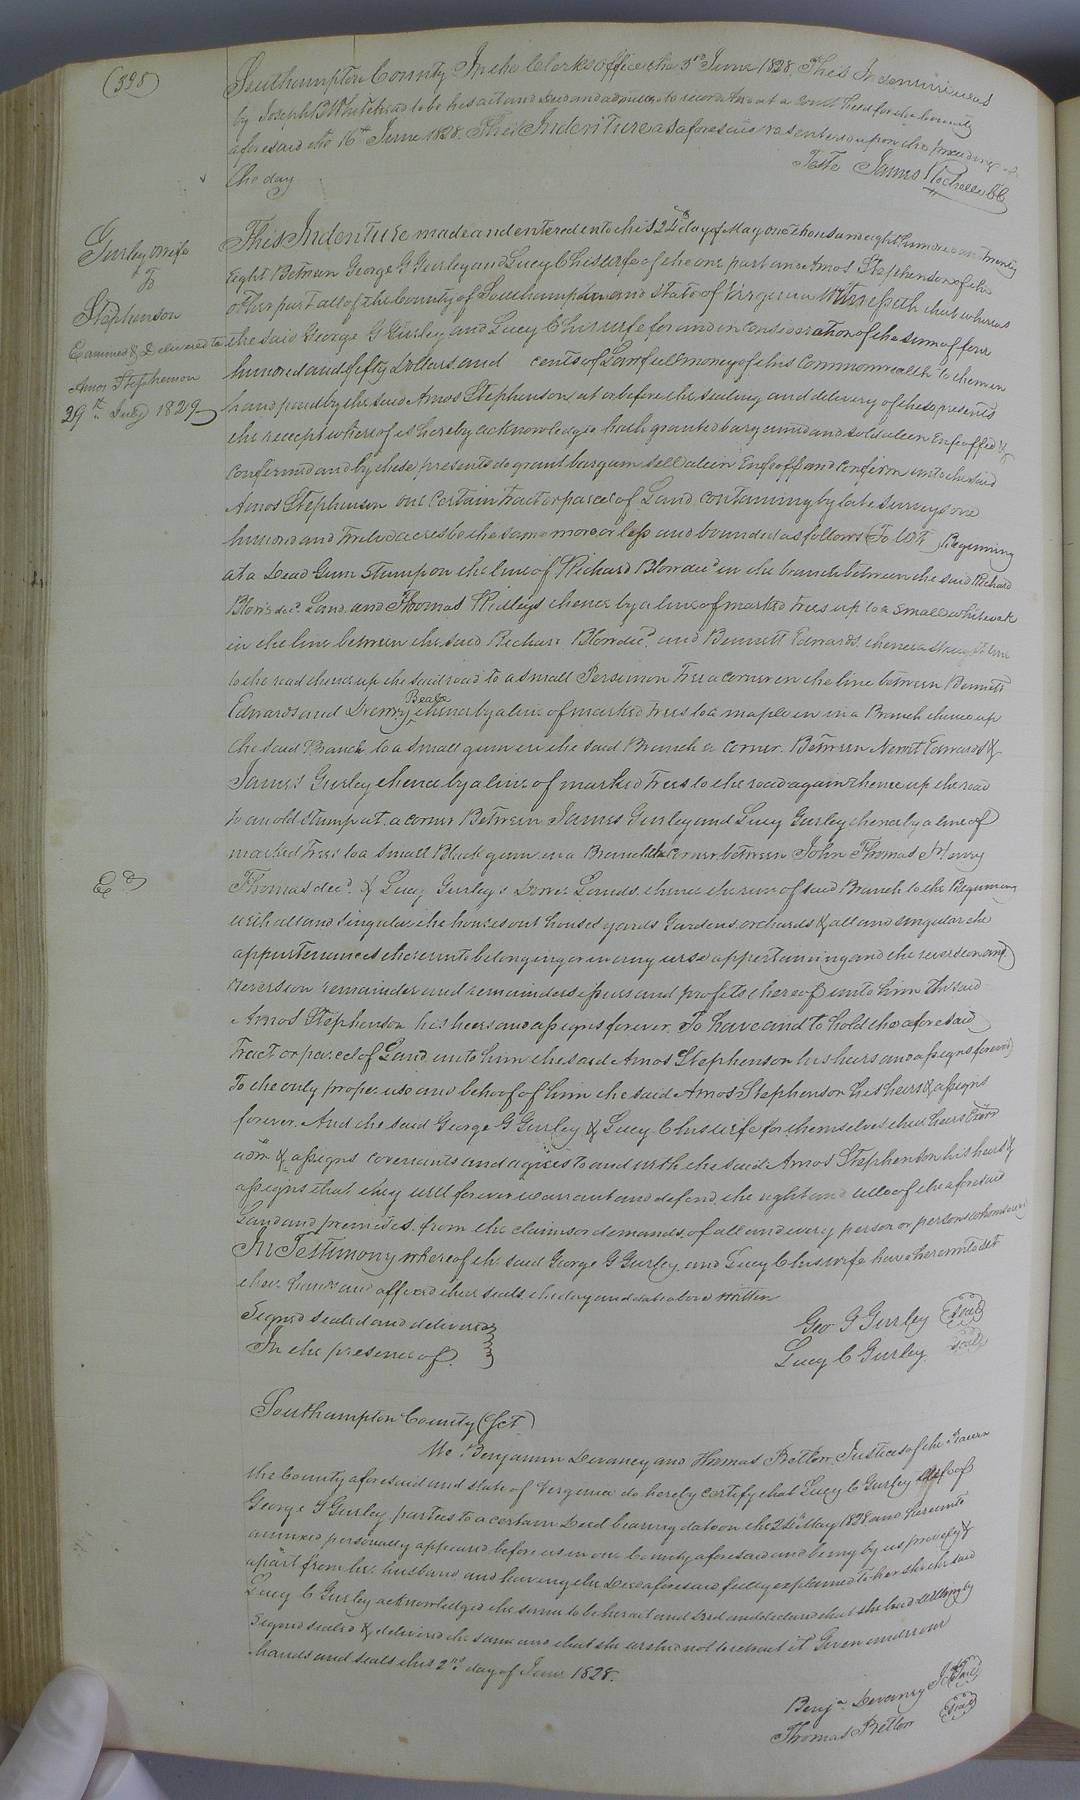 (398)
Southampton County In the Clerks office the 3rd June 1828. This Indenture was
by Joseph B Whitehead to be his act and deed and admitted to record And at a Court held for the County
aforesaid the 16th June 1828. This Indenture aforesaid was entered upon the proceedings of
the day
Teste James Rochelle CC
Gurley & Wife
To
Stephenson
Examined & Delivered to
Amos Stephenson
29th July 1829
This Indenture made and entered into this 24th day of May one thousand eight hundred and twenty
Eight Between George G Gurley and Lucy C his wife of the one part and Amos Stephenson of the
other part all of the County of Southampton and State of Virginia Witnesseth that whereas
the said George G Gurley and Lucy C his wife for and in consideration of the sum of four
hundred and fifty Dollars and cents of Lawfull money of this Commonwealth to them in
hand paid by the said Amos Stephenson at or before the sealing and delivery of these presents
the receipt whereof is hereby acknowledged hath granted bargained and sold alien Enfeoffed &
confirmed and by these presents do grant bargain sell alien Enfeoff and confirm unto the said
Amos Stephenson one certain tract or parcel of Land containing by late surveys one
hundred and twelve acres be the same more or less and bounded as follows (To Wit) Begining
at a Dead Gum Stump on the line of Richard Blow decd in the branch between the said Richard
Blows decd. Land and Thomas Ridleys thence by a line of marked trees up to a small white oak
in the line between the said Richard Blow decd. and Bennett Edwards thence a straight line
to the road thence up the said road to a small Persimon tree a corner in the line between Bennett
Edwards and Drewry Beale thence by a line of marked trees to a maple in in a Branch thence up
the said Branch to a small gum in the said Branch a corner Between Newit Edwards &
James Gurley thence by a line of marked trees to the road again thence up the road
to an old stump at a corner Between James Gurley and Lucy Gurley thence by a line of
marked trees to a small Black gum in a Branch the corner between John Thomas Henry
Exd
Thomas decd. & Lucy Gurley's Dower Lands thence the run of said Branch to the Begining
with all and singular the houses out houses yards Gardens orchards & all and singular the
appurtenances thereunto belonging or in any wise appertaining and the reversion and
reversion remainder and remainders issues and profits thereof unto him the said
Amos Stephenson his heirs and assigns forever. To have and to hold the aforesaid
Tract or parcel of Land unto him the said Amos Stephenson his heirs and assigns forever
To the only proper use and behoof of him the said Amos Stephenson his heirs & assigns
forever. And the said George G Gurley & Lucy C his wife for themselves their heirs Exors
adm & assigns covenants and agrees to and with the said Amos Stephenson his heirs &
assigns that they will forever warrant and defend the right and title of the aforesaid
Land and premises from the claims or demands of all and every person or persons whomsoever
In Testimony whereof the said George G Gurley and Lucy C his wife have hereunto set
their hands and affixed their seals the day and date above written
Signed sealed and delivered
In the presence of
Geo G Gurley (seal)
Lucy C Gurley (seal)
Southampton County (Sct)
We Benjamin Devaney and Thomas Pretlow Justices of the Peace in
the County aforesaid and state of Virginia do hereby certify that Lucy C Gurley wife of
George G Gurley parties to a certain Deed bearing date on the 24th May 1828 and hereunto
annexed personally appeared before us in our County aforesaid and being by us privately &
apart from her husband and having the Deed aforesaid fully explained to her she the said
Lucy C Gurley acknowledged the same to be her act and deed and declared that she had willingly
signed sealed & delivered the same and that she wished not to retract it Given under our
hands and seals this 2nd day of June 1828.
Benja. Devaney JP (seal)
Thomas Pretlow (seal)